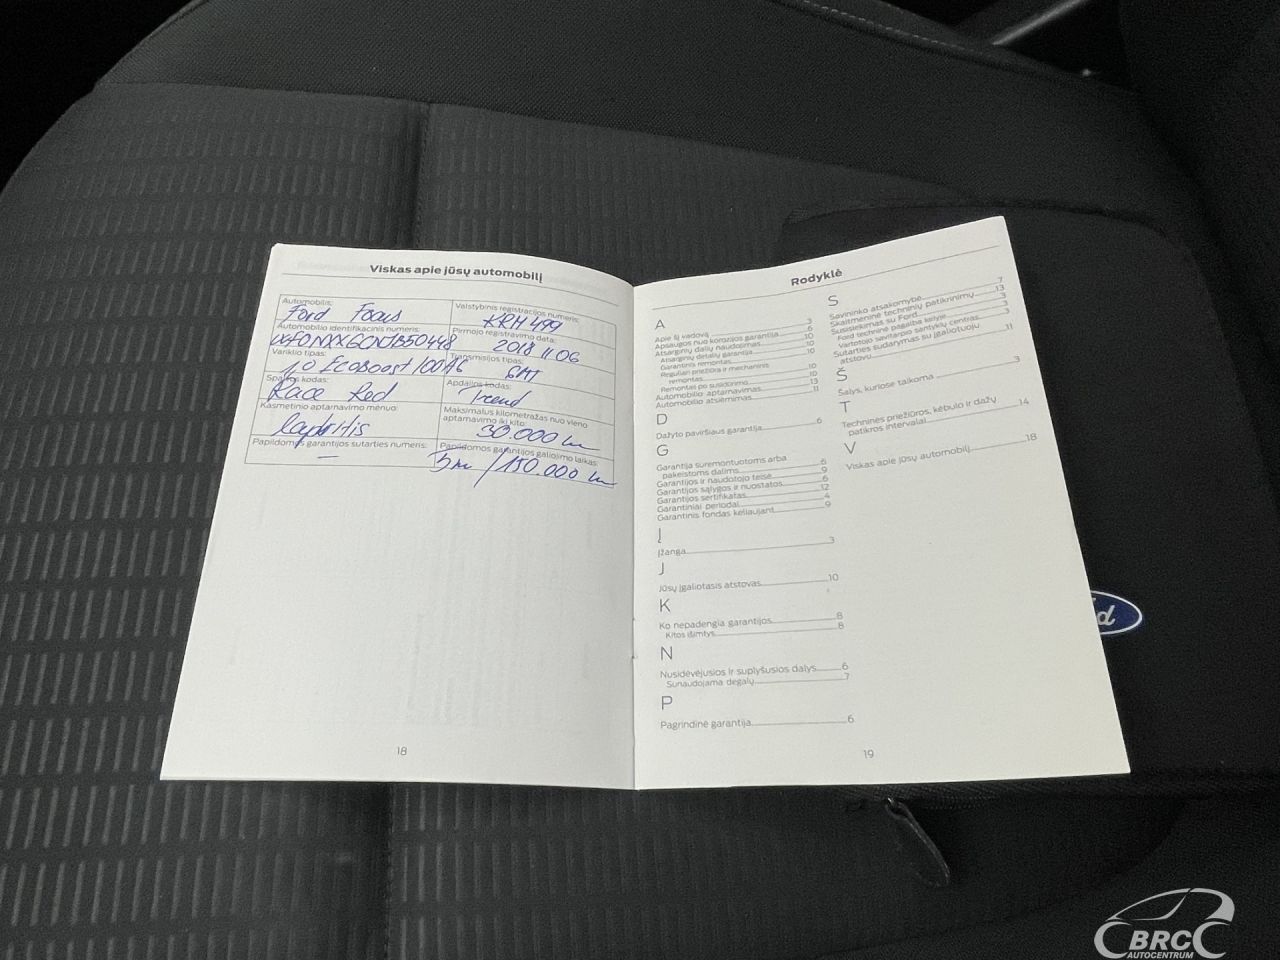 Viskas apie jūsų automobilį
Automobilis:
Ford Focus
Valstybinis registracijos numeris:
KRH 499
Automobilio identifikacinis numeris:
Pirmojo registravimo data:
2018 11 06
Variklio tipas:
1,0 EcoBoost
Transmisijos tipas:
6MT
Spalvos kodas:
Race Red
Apdailos kodas:
Trend
Kasmetinio aptarnavimo mėnuo:
Lapkritis
Maksimalus kilometražas nuo vieno
aptarnavimo iki kito:
30.000 km
Papildomos garantijos sutarties numeris:
—
Papildomos garantijos galiojimo laikas:
5m /150.000 km
18
Rodyklė
A
Apie šį vadovą 3
Apsaugos nuo korozijos garantija 6
Atsarginių dalių naudojimas 10
Atsarginių detalių garantija 10
Garantinis remontas 10
Reguliari priežiūra ir mechaninis
remontas 10
Remontas po susidūrimo 10
Automobilio aptarnavimas 13
Automobilio atsiėmimas 11
D
Dažyto paviršiaus garantija 6
G
Garantija suremontuotoms arba
pakeistoms dalims 6
Garantijos ir naudotojo teisė 9
Garantijos sąlygos ir nuostatos 6
Garantijos sertifikatas 12
Garantiniai periodai 4
Garantinis fondas keliaujant 9
Į
Įžanga 3
J
Jūsų įgaliotasis atstovas 10
K
Ko nepadengia garantijos 8
Kitos išimtys 8
N
Nusidėvėjusios ir suplyšusios dalys 6
Sunaudojama degalų 7
P
Pagrindinė garantija 6
S
Savininko atsakomybė 7
Skaitmeninė techninių patikrinimų 13
Susisiekimas su Ford 3
Ford techninė pagalba kelyje 3
Vartotojo savitarpio santykių centras 3
Sutarties sudarymas su įgaliotuoju
atstovu 11
Š
Šalys, kuriose taikoma 3
T
Techninės priežiūros, kėbulo ir dažų
patikros intervalai 14
V
Viskas apie jūsų automobilį 18
19
BRC
AUTOCENTRUM